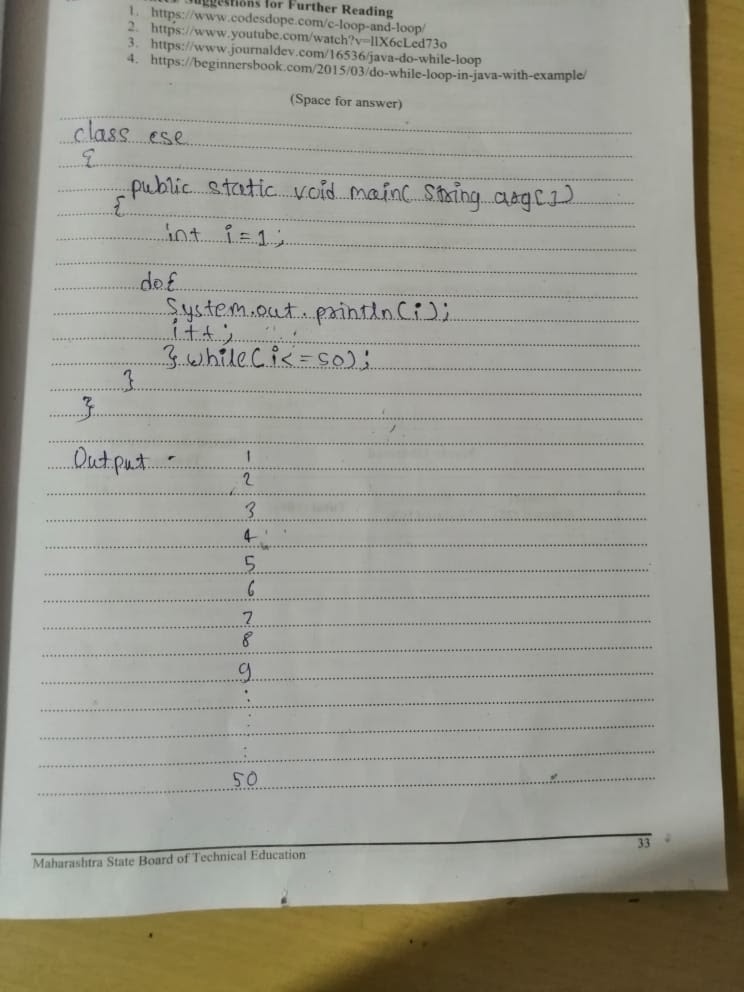 Suggestions for Further Reading
1. https://www.codesdope.com/c-loop-and-loop/
2. https://www.youtube.com/watch?v=lIX6cLed73o
3. https://www.journaldev.com/16536/java-do-while-loop
4. https://beginnersbook.com/2015/03/do-while-loop-in-java-with-example/
(Space for answer)
class ese
{
public static void main( String arg[])
{
int i = 1;
do{
System.out.println(i);
i++;
} while( i<=50);
}
}
Output - 1
2
3
4
5
6
7
8
9
:
:
:
50
33
Maharashtra State Board of Technical Education